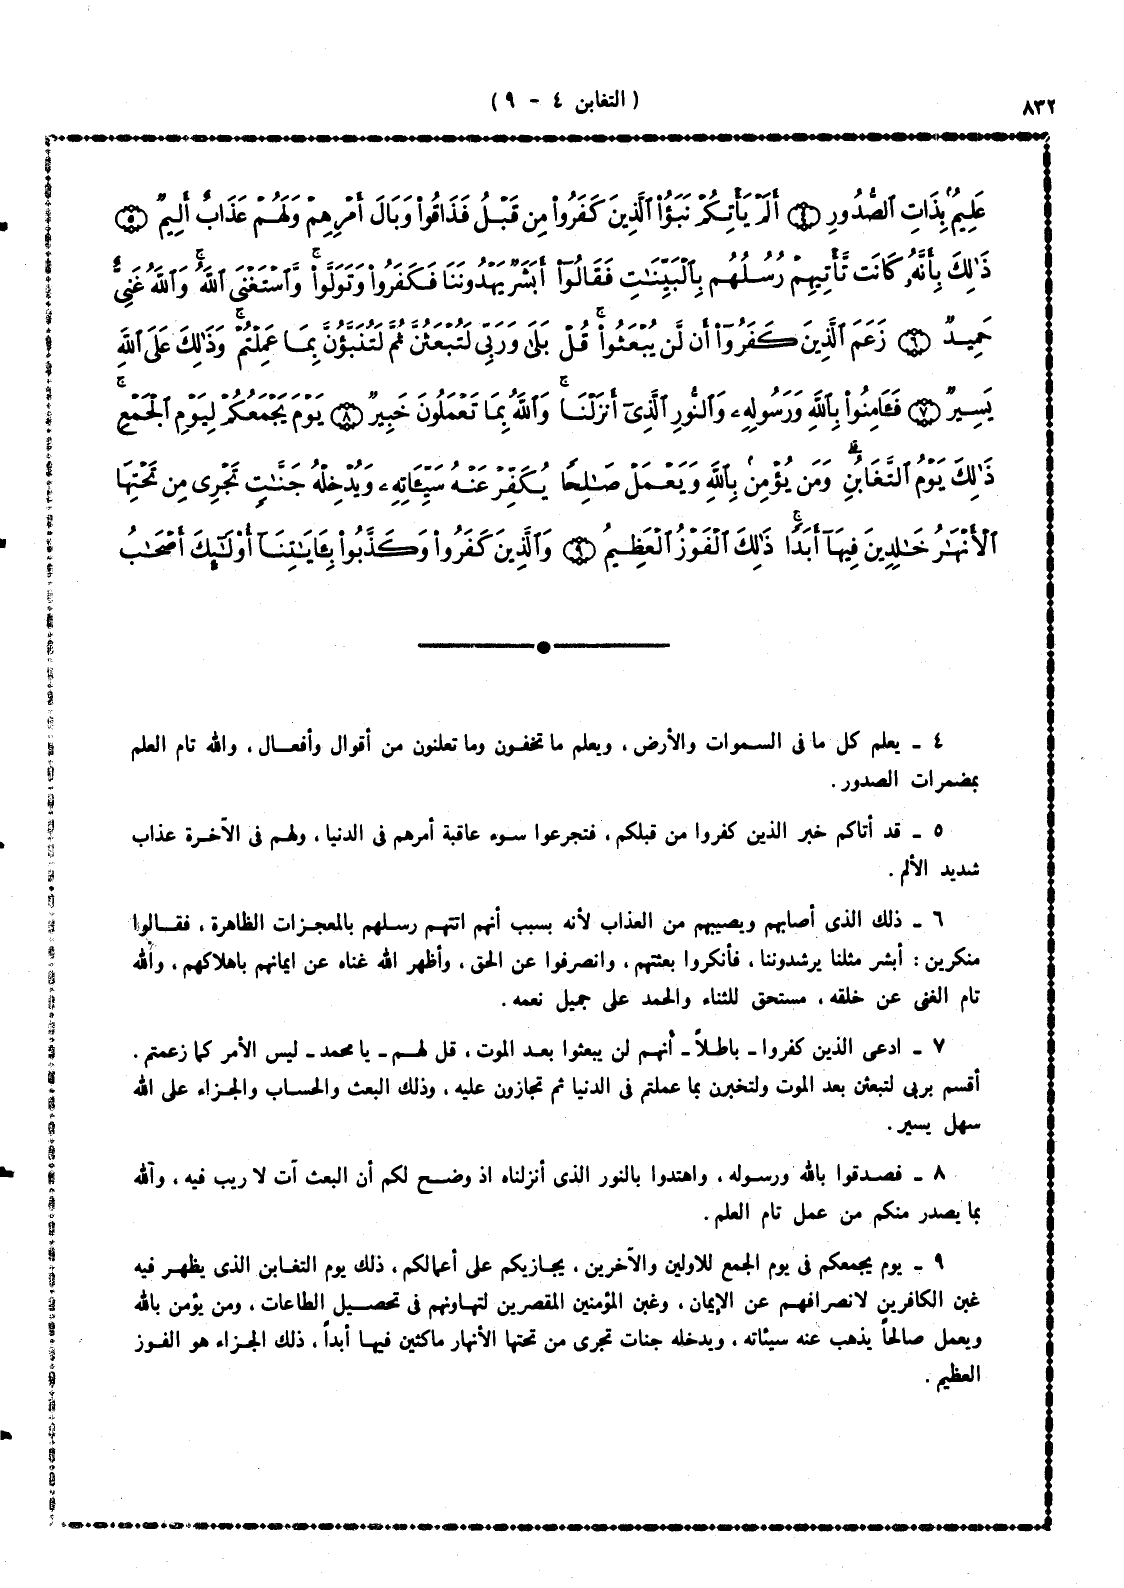 ٨٣٢
( التغابن ٤ - ٩ )
عَلِيمٌۢ بِذَاتِ ٱلصُّدُورِ ﴿٤﴾ أَلَمْ يَأْتِكُمْ نَبَؤُاْ ٱلَّذِينَ كَفَرُواْ مِن قَبْلُ فَذَاقُواْ وَبَالَ أَمْرِهِمْ وَلَهُمْ عَذَابٌ أَلِيمٌ ﴿٥﴾
ذَٰلِكَ بِأَنَّهُۥ كَانَت تَّأْتِيهِمْ رُسُلُهُم بِٱلْبَيِّنَٰتِ فَقَالُوٓاْ أَبَشَرٌ يَهْدُونَنَا فَكَفَرُواْ وَتَوَلَّواْ ۚ وَّٱسْتَغْنَى ٱللَّهُ ۚ وَٱللَّهُ غَنِىٌّ
حَمِيدٌ ﴿٦﴾ زَعَمَ ٱلَّذِينَ كَفَرُوٓاْ أَن لَّن يُبْعَثُواْ ۚ قُلْ بَلَىٰ وَرَبِّى لَتُبْعَثُنَّ ثُمَّ لَتُنَبَّؤُنَّ بِمَا عَمِلْتُمْ ۚ وَذَٰلِكَ عَلَى ٱللَّهِ
يَسِيرٌ ﴿٧﴾ فَـَٔامِنُواْ بِٱللَّهِ وَرَسُولِهِۦ وَٱلنُّورِ ٱلَّذِىٓ أَنزَلْنَا ۚ وَٱللَّهُ بِمَا تَعْمَلُونَ خَبِيرٌ ﴿٨﴾ يَوْمَ يَجْمَعُكُمْ لِيَوْمِ ٱلْجَمْعِ ۖ
ذَٰلِكَ يَوْمُ ٱلتَّغَابُنِ ۗ وَمَن يُؤْمِنۢ بِٱللَّهِ وَيَعْمَلْ صَٰلِحًا يُكَفِّرْ عَنْهُ سَيِّـَٔاتِهِۦ وَيُدْخِلْهُ جَنَّٰتٍ تَجْرِى مِن تَحْتِهَا
ٱلْأَنْهَٰرُ خَٰلِدِينَ فِيهَآ أَبَدًا ۚ ذَٰلِكَ ٱلْفَوْزُ ٱلْعَظِيمُ ﴿٩﴾ وَٱلَّذِينَ كَفَرُواْ وَكَذَّبُواْ بِـَٔايَٰتِنَآ أُوْلَٰٓئِكَ أَصْحَٰبُ
٤ ـ يعلم كل ما فى السموات والأرض ، ويعلم ما تخفون وما تعلنون من أقوال وأفعال ، والله تام العلم
بمضمرات الصدور .
٥ ـ قد أتاكم خبر الذين كفروا من قبلكم ، فتجرعوا سوء عاقبة أمرهم فى الدنيا ، ولهم فى الآخرة عذاب
شديد الألم .
٦ ـ ذلك الذى أصابهم ويصيبهم من العذاب لأنه بسبب أنهم اتتهم رسلهم بالمعجزات الظاهرة ، فقالوا
منكرين : أبشر مثلنا يرشدوننا ، فأنكروا بعثتهم ، وانصرفوا عن الحق ، وأظهر الله غناه عن ايمانهم باهلاكهم ، والله
تام الغنى عن خلقه ، مستحق للثناء والحمد على جميل نعمه .
٧ ـ ادعى الذين كفروا ـ باطلاً ـ أنهم لن يبعثوا بعد الموت ، قل لهم ـ يا محمد ـ ليس الأمر كما زعمتم .
أقسم بربى لتبعثن بعد الموت ولتخبرن بما عملتم فى الدنيا ثم تجازون عليه ، وذلك البعث والحساب والجزاء على الله
سهل يسير .
٨ ـ فصدقوا بالله ورسوله ، واهتدوا بالنور الذى أنزلناه اذ وضح لكم أن البعث آت لا ريب فيه ، والله
بما يصدر منكم من عمل تام العلم .
٩ ـ يوم يجمعكم فى يوم الجمع للاولين والآخرين ، يجازيكم على أعمالكم ، ذلك يوم التغابن الذى يظهر فيه
غبن الكافرين لانصرافهم عن الإيمان ، وغبن المؤمنين المقصرين لتهاونهم فى تحصيل الطاعات ، ومن يؤمن بالله
ويعمل صالحاً يذهب عنه سيئاته ، ويدخله جنات تجرى من تحتها الأنهار ماكثين فيها أبداً ، ذلك الجزاء هو الفوز
العظيم .